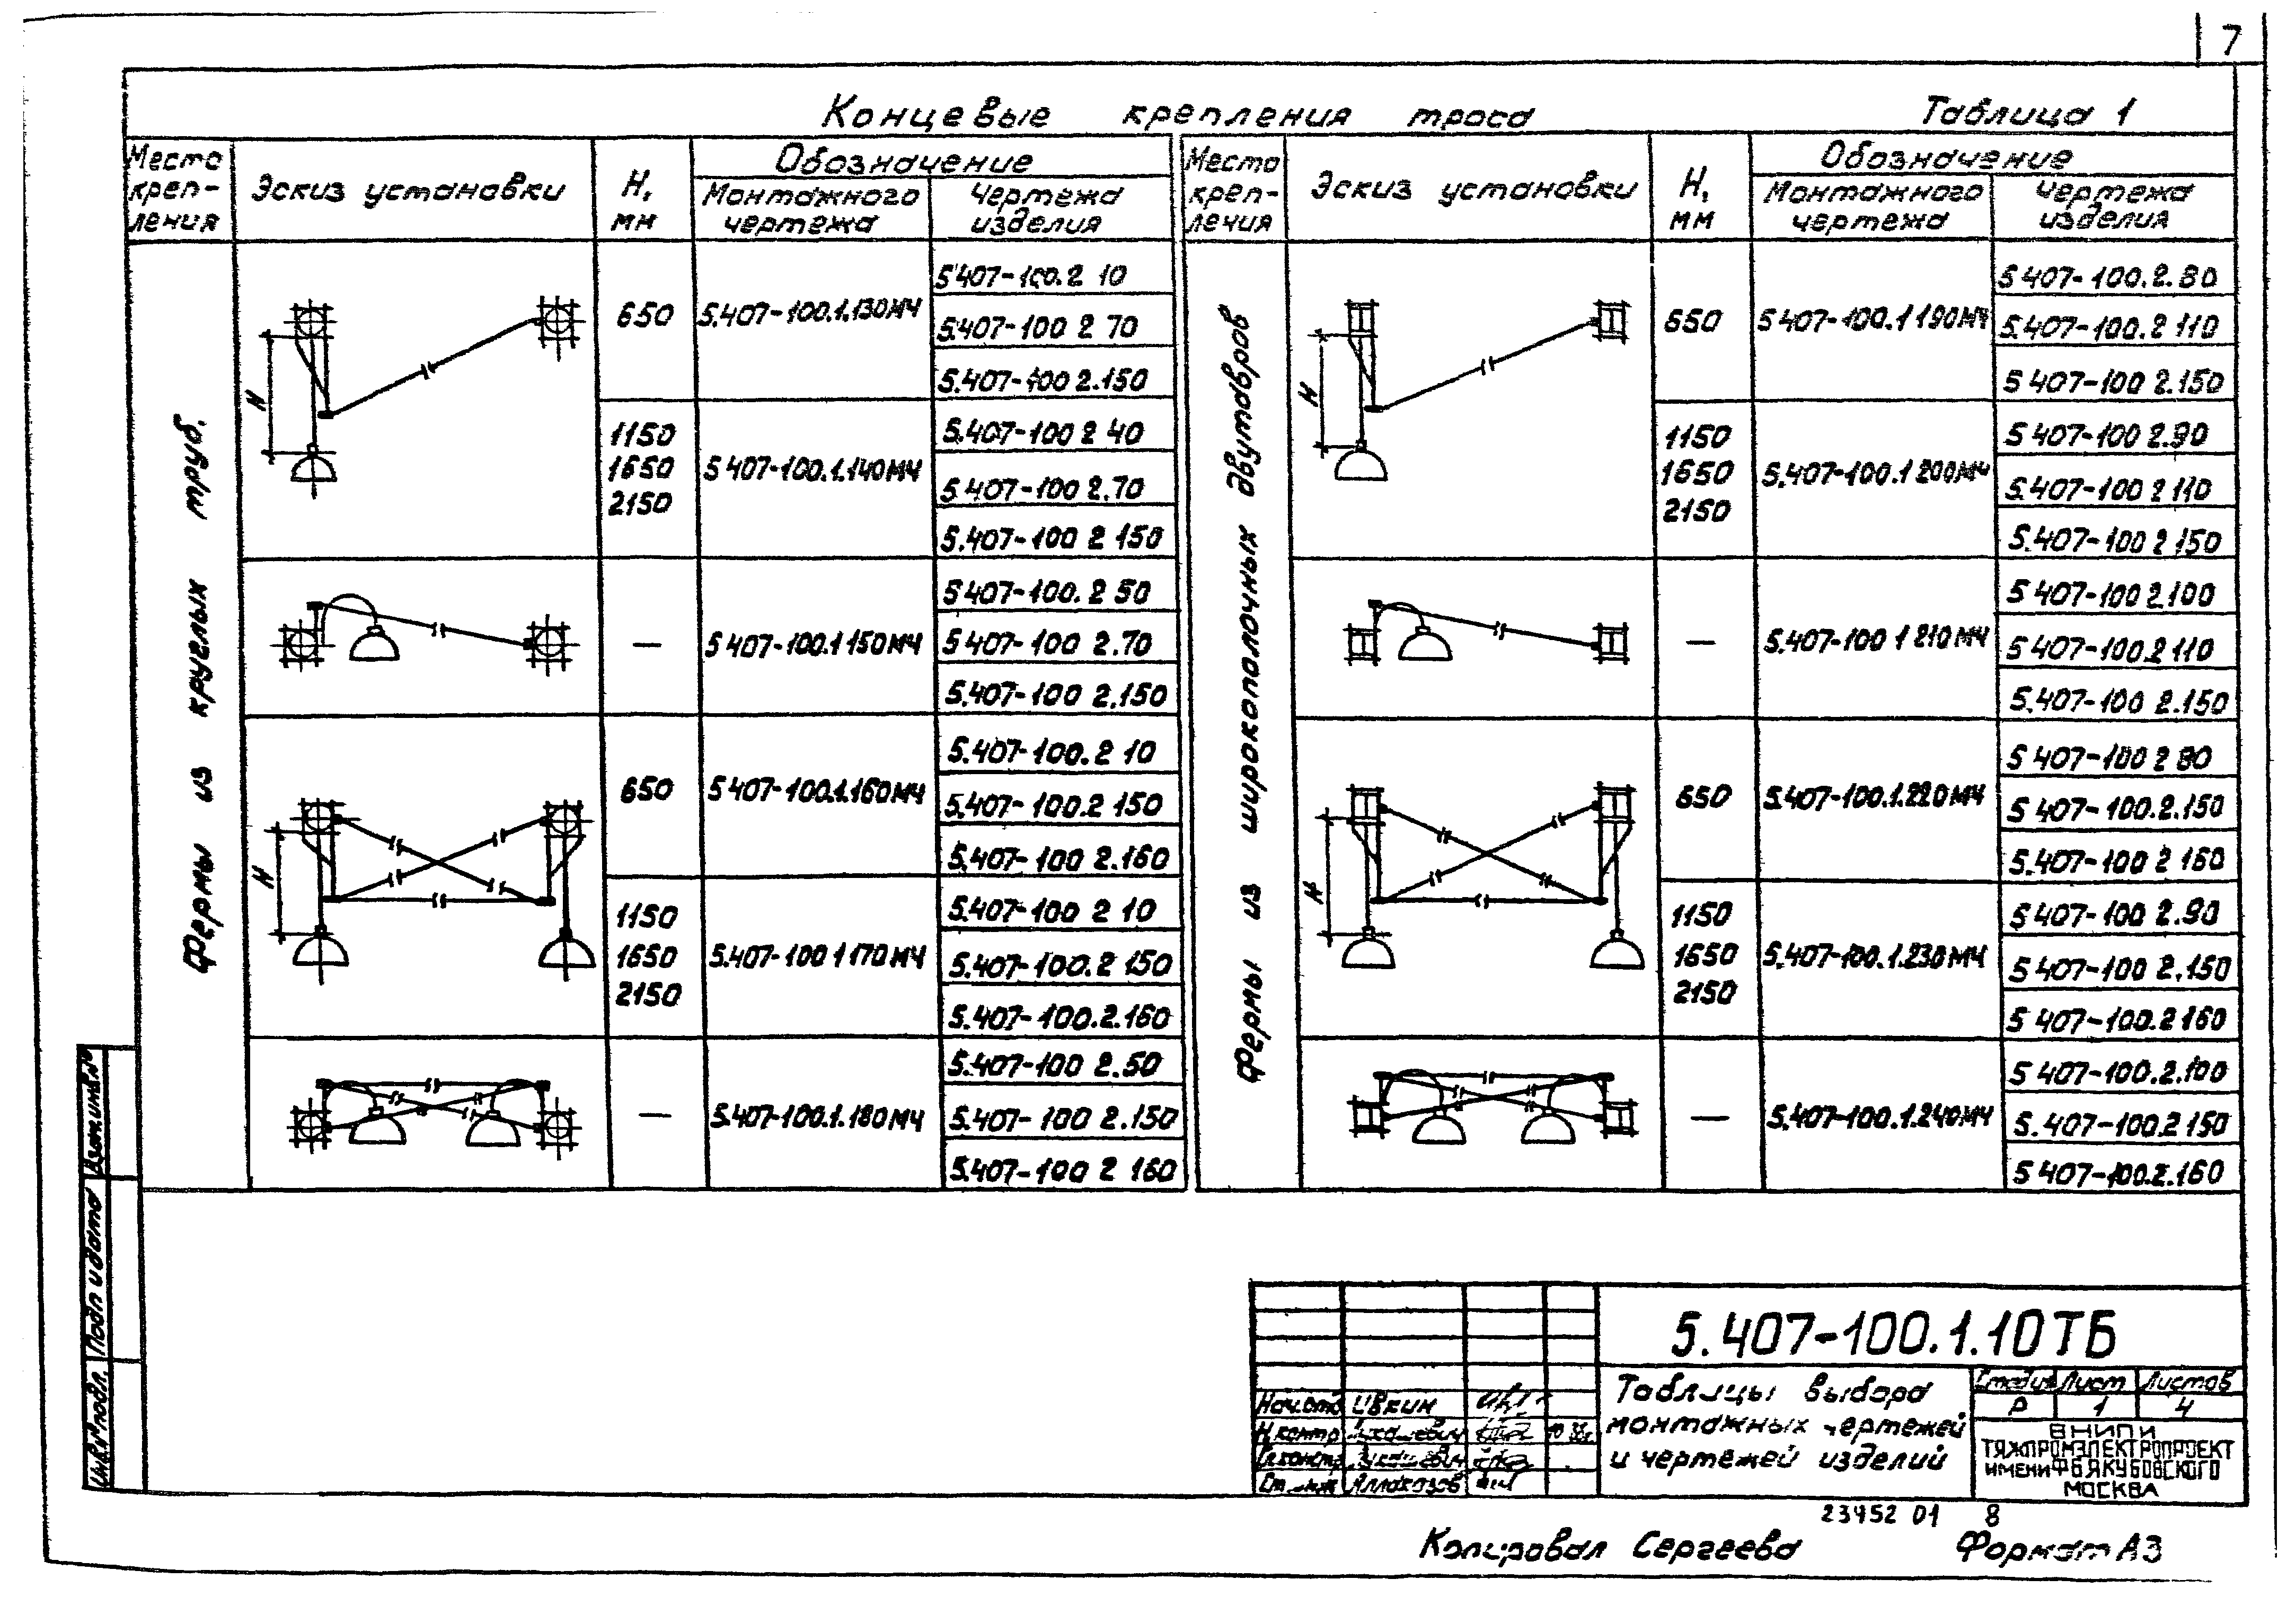 7
Концевые крепления троса
Таблица 1
Место креп- ления
Эскиз установки
Н, мм
Обозначение
Монтажного чертежа
Чертежа изделия
Фермы из круглых труб.
Н
650
5.407-100.1.130МЧ
5.407-100.2 10
5.407-100 2 70
5.407-100 2.150
1150
1650
2150
5 407-100.1.140МЧ
5.407-100 2 40
5.407-100 2.70
5.407-100 2 150
—
5 407-100.1 150МЧ
5 407-100. 2 50
5 407-100 2.70
5.407-100 2.150
Н
650
5 407-100.1.160МЧ
5.407-100.2 10
5.407-100.2 150
5.407-100 2.160
1150
1650
2150
5.407-100 1 170МЧ
5.407-100 2 10
5.407-100.2 150
5.407-100.2.160
—
5.407-100.1.180МЧ
5.407-100 2.50
5.407-100 2.150
5.407-100 2 160
Место креп- ления
Эскиз установки
Н, мм
Обозначение
Монтажного чертежа
Чертежа изделия
Фермы из широкополочных двутавров
Н
650
5 407-100.1 190МЧ
5 407-100.2.80
5.407-100.2 110
5 407-100 2.150
1150
1650
2150
5.407-100.1 200МЧ
5 407-100 2.90
5.407-100 2 110
5.407-100 2 150
—
5.407-100 1 210МЧ
5 407-100 2.100
5 407-100.2 110
5.407-100 2.150
Н
650
5.407-100.1.220МЧ
5 407-100 2 80
5 407-100.2.150
5.407-100 2 160
1150
1650
2150
5.407-100.1.230МЧ
5 407-100 2.90
5 407-100 2.150
5 407-100.2 160
—
5.407-100.1.240МЧ
5 407-100.2.100
5.407-100.2 150
5 407-100.2.160
Взам.инв.№
Подп и дата
Инв.№подл.
5.407-100.1.10ТБ
Таблицы выбора
монтажных чертежей
и чертежей изделий
Стадия Лист Листов
Р 1 4
ВНИПИ
ТЯЖПРОМЭЛЕКТРОПРОЕКТ
ИМЕНИ Ф Б ЯКУБОВСКОГО
МОСКВА
Нач.отд Ивкин
Н.контр
Гл констр
Ст инж
23452 01 8
Копировал Сергеева Формат А3